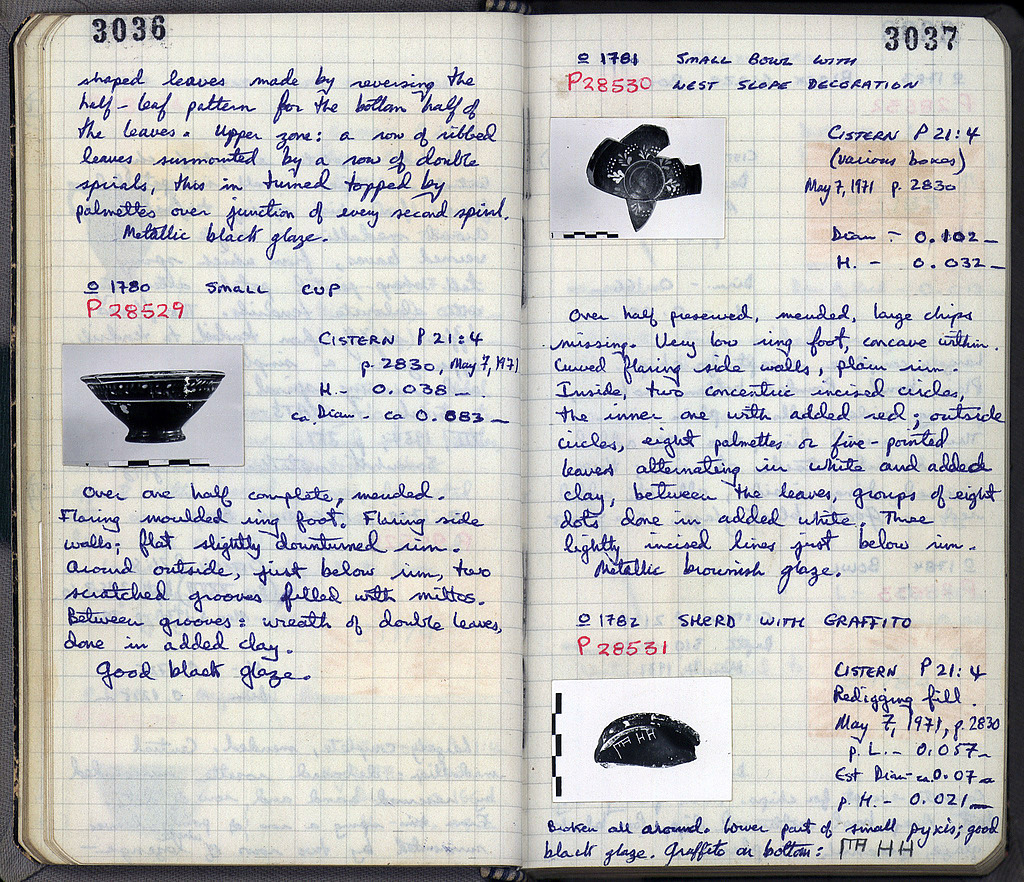 3036
shaped leaves made by reversing the
half-leaf pattern for the bottom half of
the leaves. Upper zone: a row of ribbed
leaves surmounted by a row of double
spirals, this in turned topped by
palmettes over junction of every second spiral.
Metallic black glaze.
o 1780 SMALL CUP
P 28529
CISTERN P 21:4
p. 2830, May 7, 1971
H. - 0.038
ca. Diam - ca 0.083
Over one half complete, mended.
Flaring moulded ring foot. Flaring side
walls; flat slightly downturned rim.
Around outside, just below rim, two
scratched grooves filled with miltos.
Between grooves: wreath of double leaves,
done in added clay.
Good black glaze.
3037
o 1781 SMALL BOWL WITH
P28530 WEST SLOPE DECORATION
CISTERN P 21:4
(various boxes)
May 7, 1971 p. 2830
Diam - 0.102
H. - 0.032
Over half preserved, mended, large chips
missing. Very low ring foot, concave within.
Curved flaring side walls, plain rim.
Inside, two concentric incised circles,
the inner one with added red; outside
circles, eight palmettes or five-pointed
leaves alternating in white and added
clay, between the leaves, groups of eight
dots done in added white. Three
lightly incised lines just below rim.
Metallic brownish glaze.
o 1782 SHERD WITH GRAFFITO
P 28531
CISTERN P 21:4
Redigging fill.
May 7, 1971, p. 2830
p. L. - 0.057
Est Diam - ca. 0.07
p. H. - 0.021
Broken all around. Lower part of small pyxis; good
black glaze. Graffito on bottom: HH